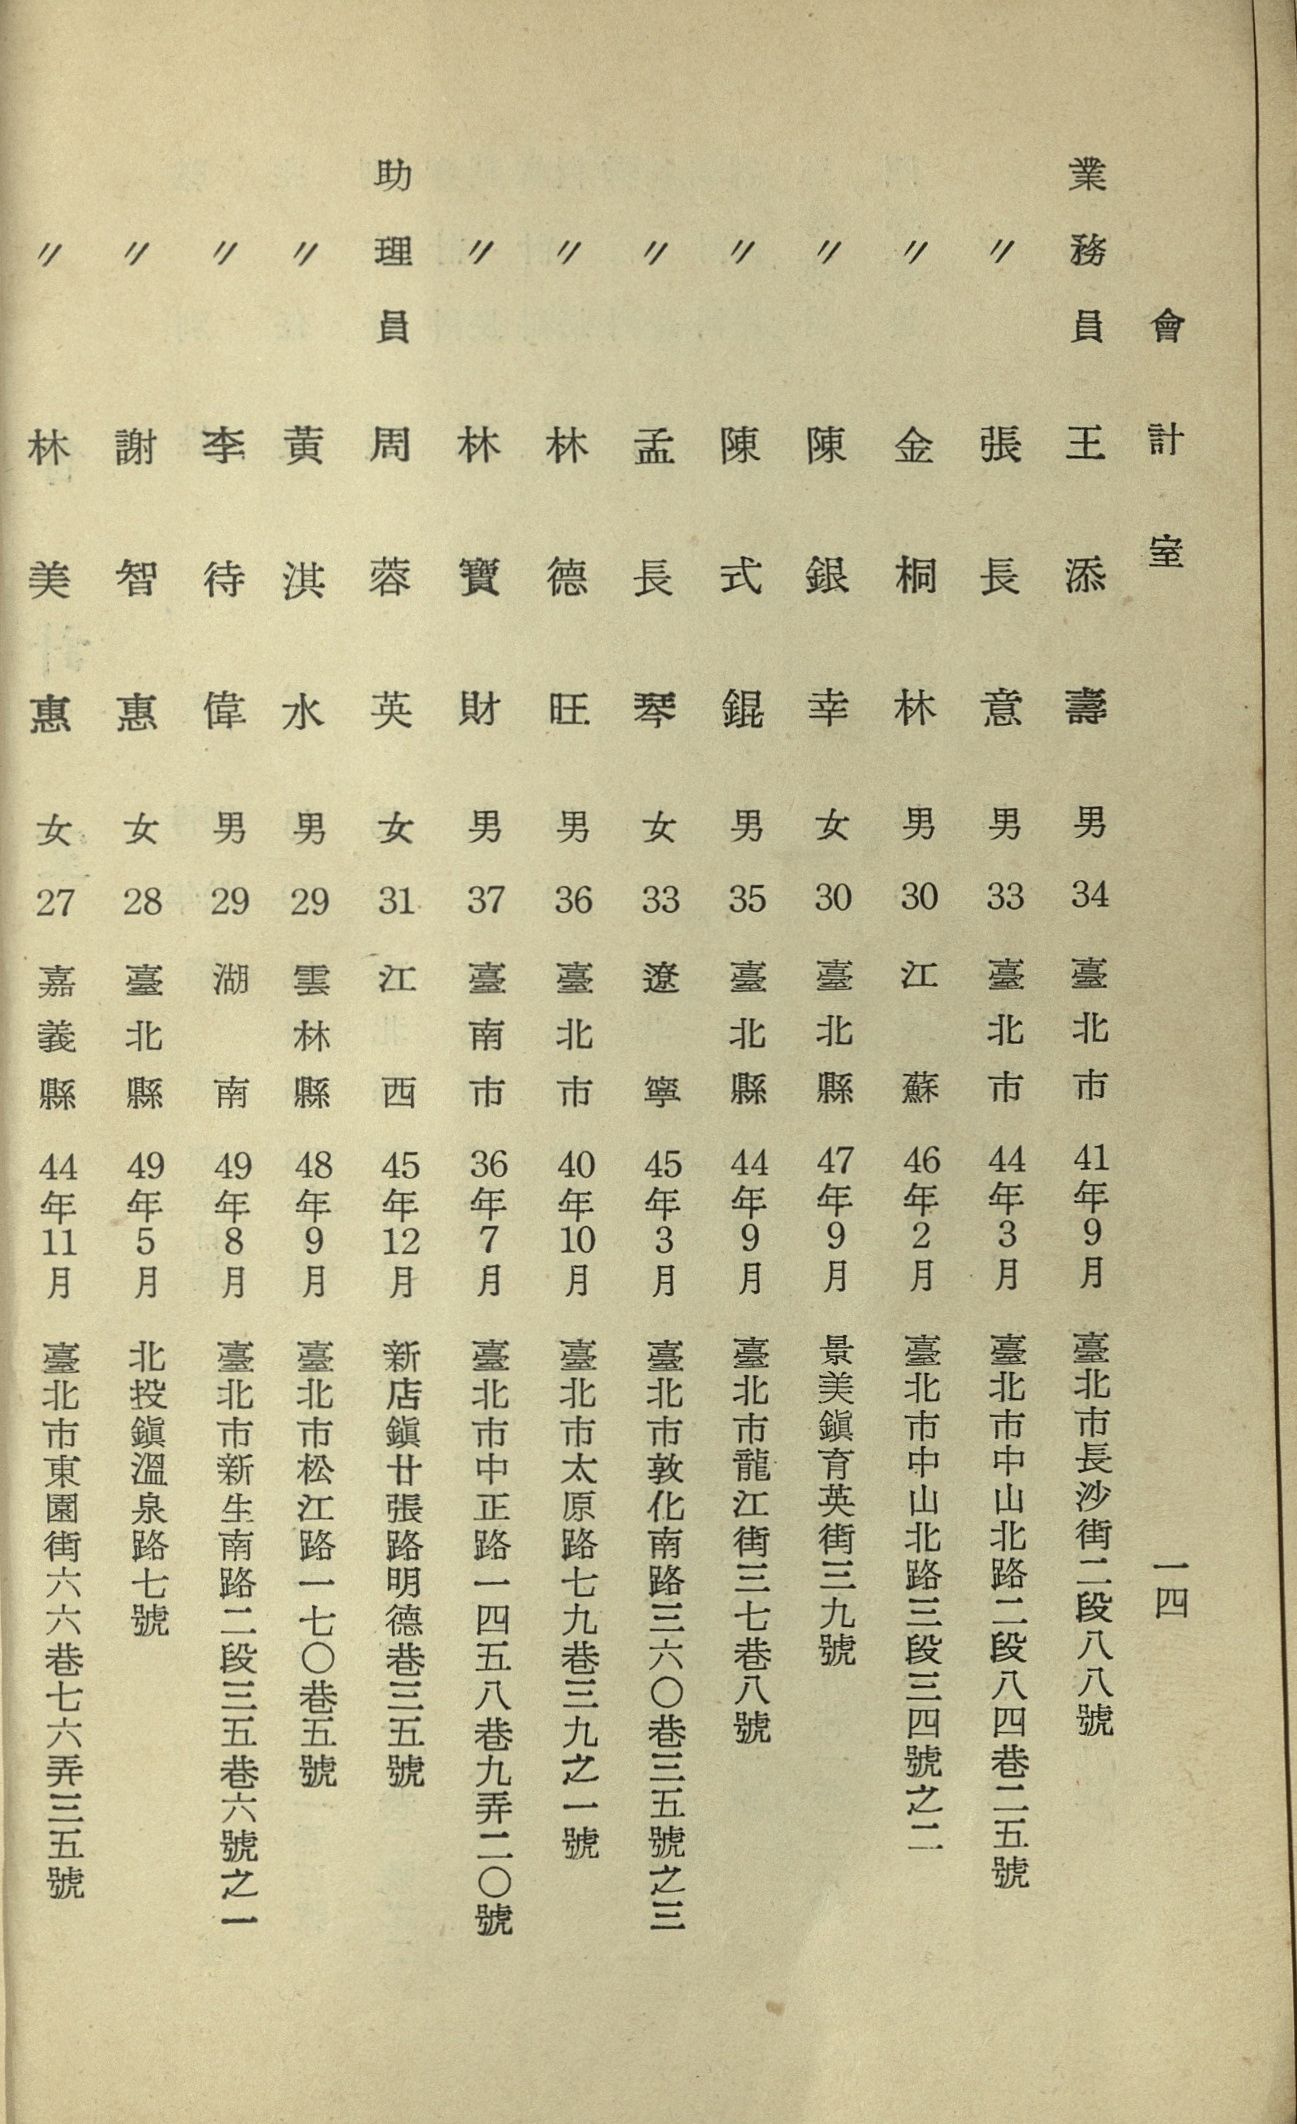 會計室
一四
業務員 王添壽 男 34 臺北市 41年9月 臺北市長沙街二段八八號
〃 張長意 男 33 臺北市 44年3月 臺北市中山北路二段八四巷二五號
〃 金桐林 男 30 江蘇 46年2月 臺北市中山北路三段三四號之二
〃 陳銀幸 女 30 臺北縣 47年9月 景美鎮育英街三九號
〃 陳式錕 男 35 臺北縣 44年9月 臺北市龍江街三七巷八號
〃 孟長琴 女 33 遼寧 45年3月 臺北市敦化南路三六〇巷三五號之三
〃 林德旺 男 36 臺北市 40年10月 臺北市太原路七九巷三九之一號
〃 林寶財 男 37 臺南市 36年7月 臺北市中正路一四五八巷九弄二〇號
助理員 周蓉英 女 31 江西 45年12月 新店鎮廿張路明德巷三五號
〃 黃淇水 男 29 雲林縣 48年9月 臺北市松江路一七〇巷五號
〃 李待偉 男 29 湖南 49年8月 臺北市新生南路二段三五巷六號之一
〃 謝智惠 女 28 臺北縣 49年5月 北投鎮溫泉路七號
〃 林美惠 女 27 嘉義縣 44年11月 臺北市東園街六六巷七六弄三五號